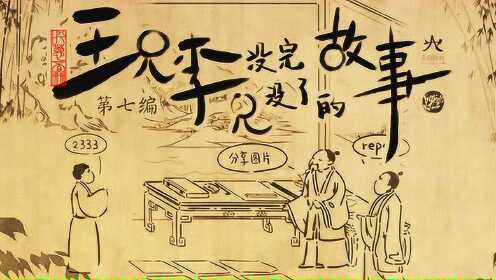 王兄李兄没完没了的故事
第七编
2333
分享图片
repo